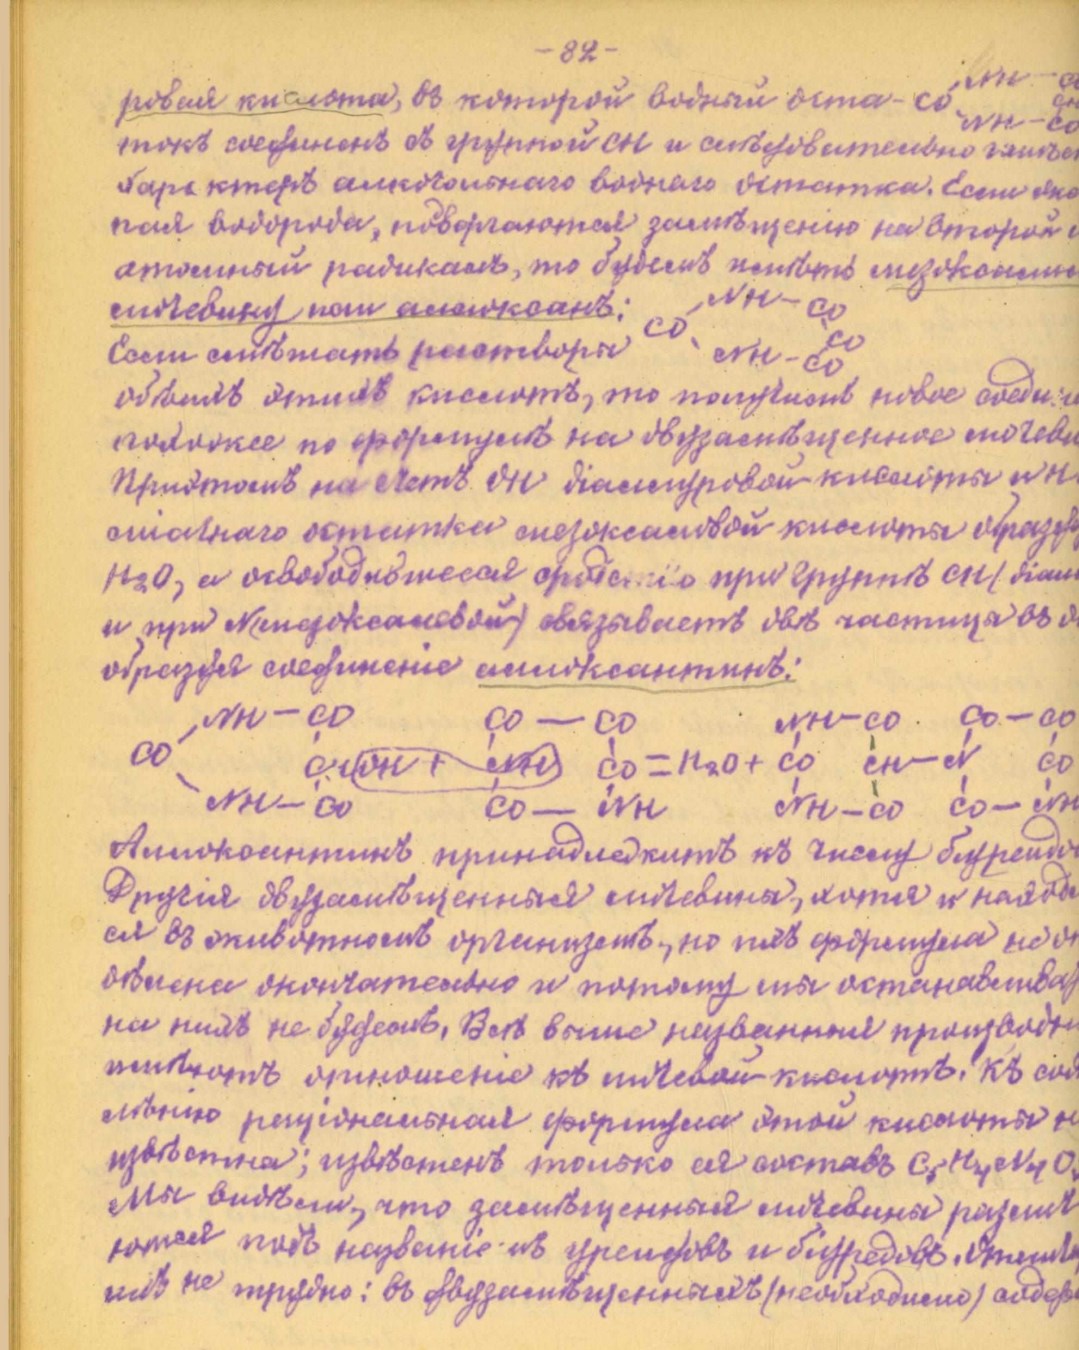 -82-
ровая кислота, въ которой водный оста- CO NH - CO
NH - CO
токъ соединенъ съ группой CH и слѣдовательно имѣет
характеръ алкогольнаго воднаго остатка. Если оба
пая водорода, подвергаются замѣщенію на второй
атомный радикалъ, то будемъ имѣть мезоксалил
мочевину или аллоксанъ: NH - CO
CO CO
Если смѣшать растворы NH - CO
обѣихъ этихъ кислотъ, то получимъ новое соеди
похожее по формулѣ на двузамѣщенное мочеви
Притомъ на счетъ OH діалуровой кислоты и H
міачнаго остатка мезоксаловой кислоты образу
H₂O, а освободившееся сродство при группѣ CH (діал
и при N (мезоксаловой) связываетъ двѣ частицы въ
образуя соединеніе аллоксантинъ:
NH - CO CO - CO NH - CO CO - CO
CO CH OH + NH CO = H₂O + CO CH - N CO
NH - CO CO - NH NH - CO CO - NH
Аллоксантинъ принадлежитъ къ числу біуреидо
Другія двузамѣщенныя мочевины, хотя и наход
ся въ животномъ организмѣ, но ихъ формула не
окончательно и потому мы останавлива
на нихъ не будемъ. Всѣ выше названныя производн
имѣютъ отношеніе къ мочевой кислотѣ. Къ сож
лѣнію раціональная формула этой кислоты н
извѣстна; извѣстенъ только ея составъ C₅H₄N₄O₃
Мы видѣли, что замѣщенныя мочевины
ются подъ названіемъ уреидовъ и біуредовъ.
ихъ не трудно: въ двузамѣщенныхъ (необходимо)